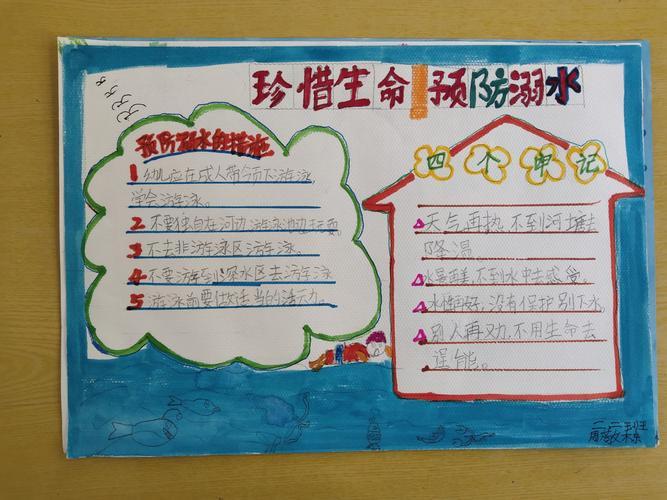 珍惜生命 预防溺水
预防溺水的措施
1 幼儿应在成人带领下游泳,
学会游泳。
2 不要独自在河边、游泳池边玩耍。
3 不去非游泳区游泳。
4 不要游到深水区去游泳
5 游泳前要做适当的活动。
四个申记
天气再热,不到河塘去
降温。
水景再美,不到水中去感受。
水性再好,没有保护别下水。
别人再劝,不用生命去
逞能。
二、二班